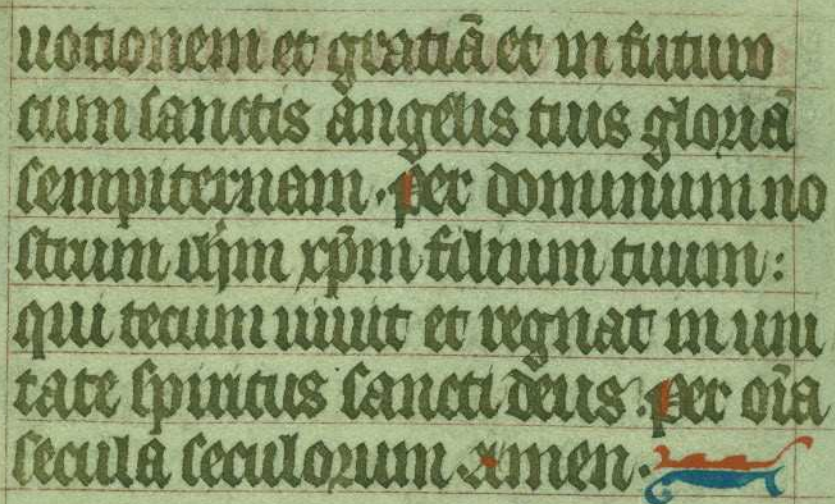 uotionem et gratiā et in futuro
cum sanctis angelis tuis gloriā
sempiternam. per dominum no
strum ihm xp̄m filium tuum:
qui tecum uiuit et regnat in uni
tate spiritus sancti deus. per oīa
secula seculorum amen.